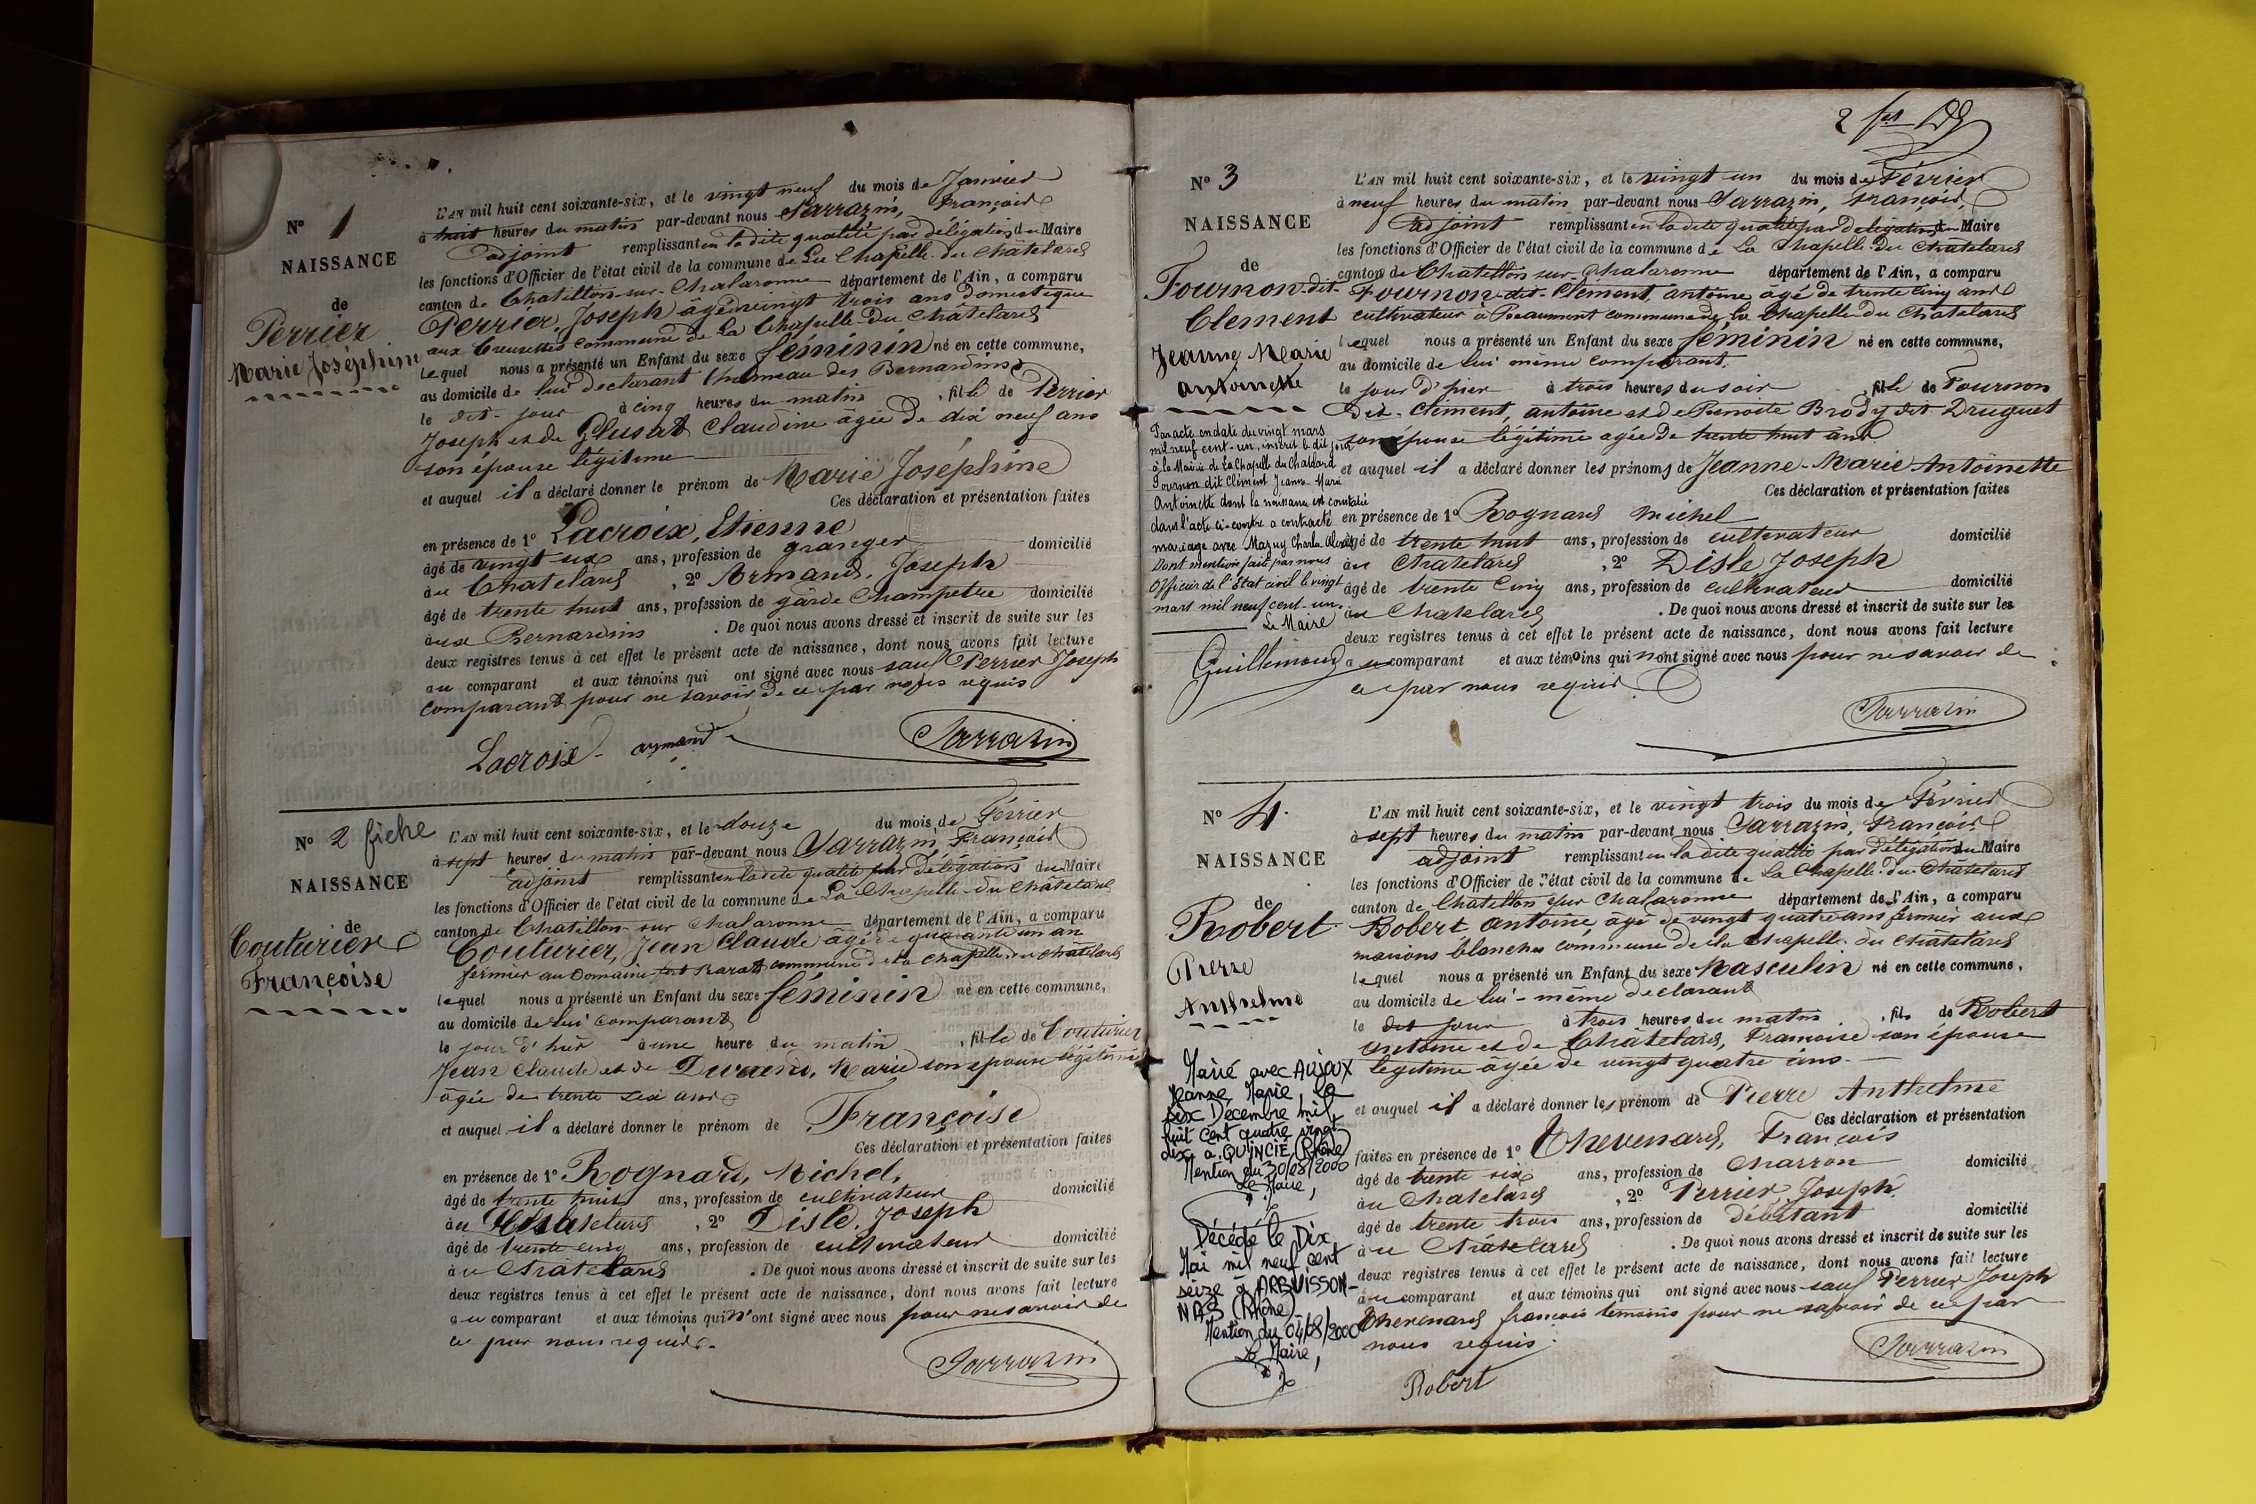 N° 1
NAISSANCE
de
Perrier
Marie Joséphine
L'AN mil huit cent soixante-six, et le vingt neuf du mois de Janvier
à huit heures du matin par-devant nous Sarrazin, François
adjoint remplissant en la dite qualité par délégation du Maire
les fonctions d'Officier de l'état civil de la commune de La Chapelle-du-Châtelard
canton de Chatillon-sur-Chalaronne département de l'Ain, a comparu
Perrier, Joseph âgé vingt trois ans domestique
aux Creusettes commune de La Chapelle-du Châtelard
lequel nous a présenté un Enfant du sexe féminin né en cette commune,
au domicile de lui declarant hameau des Bernardins
le dit-jour à cinq heures du matin, fille de Perrier
Joseph et de Claudine âgée de dix neuf ans
son épouse légitime
et auquel il a déclaré donner le prénom de Marie Joséphine
Ces déclaration et présentation faites
en présence de 1° Lacroix, Etienne
âgé de vingt six ans, profession de granger domicilié
au Chatelard, 2° Armand, Joseph
âgé de trente huit ans, profession de garde Champêtre domicilié
aux Bernardins. De quoi nous avons dressé et inscrit de suite sur les
deux registres tenus à cet effet le présent acte de naissance, dont nous avons fait lecture
au comparant et aux témoins qui ont signé avec nous sauf Perrier Joseph
comparant pour ne savoir de ce par nous requis
Lacroix armand Sarrazin
N° 2 fiche
NAISSANCE
de
Couturier
Françoise
L'AN mil huit cent soixante-six, et le douze du mois de Février
à sept heures du matin par-devant nous Sarrazin, François
adjoint remplissant en la dite qualité par délégation du Maire
les fonctions d'Officier de l'état civil de la commune de La Chapelle-du Châtelard
canton de Chatillon-sur Chalaronne département de l'Ain, a comparu
Couturier, Jean Claude âgé de quarante un an
fermier au Domaine commune de la Chapelle-du Châtelard
lequel nous a présenté un Enfant du sexe féminin né en cette commune,
au domicile de lui comparant
le jour d'hier à une heure du matin, fille de Couturier
Jean Claude et de Durand, Marie son épouse légitime
âgée de trente six ans
et auquel il a déclaré donner le prénom de Françoise
Ces déclaration et présentation faites
en présence de 1° Rognard, Michel,
âgé de trente huit ans, profession de cultivateur domicilié
au Chatelard, 2° Disle, Joseph
âgé de trente cinq ans, profession de cultivateur domicilié
au Chatelard. De quoi nous avons dressé et inscrit de suite sur les
deux registres tenus à cet effet le présent acte de naissance, dont nous avons fait lecture
au comparant et aux témoins qui n'ont signé avec nous pour ne savoir de
ce par nous requis.
Sarrazin
2
N° 3
NAISSANCE
de
Fournon-dit-
Clement
Jeanne Marie
antoinette
Par acte en date du vingt mars
mil neuf cent-un, inscrit le dit jour
à la Mairie de La Chapelle du Chatelard
Fournon dit Clément Jeanne-Marie
Antoinette dont la naissance est constatée
dans l'acte ci-contre a contracté
mariage avec Mazuy Charles Alexis
Dont mention faite par nous
Officier de l'Etat civil le vingt
mars mil neuf cent-un.
Le Maire
Guillemaud
L'AN mil huit cent soixante-six, et le vingt un du mois de Février
à neuf heures du matin par-devant nous Sarrazin, François,
adjoint remplissant en la dite qualité par délégation du Maire
les fonctions d'Officier de l'état civil de la commune de La Chapelle-du Chatelard
canton de Chatillon-sur-Chalaronne département de l'Ain, a comparu
Fournon-dit-Clément, antoine âgé de trente cinq ans
cultivateur à Beaumont commune de la Chapelle-du Chatelard
lequel nous a présenté un Enfant du sexe féminin né en cette commune,
au domicile de lui même comparant.
le jour d'hier à trois heures du soir, fille de Fournon
Dit-Clément, antoine et de Benoite Brody dit Druguet
son épouse légitime agée de trente huit ans
et auquel il a déclaré donner les prénoms de Jeanne-Marie Antoinette
Ces déclaration et présentation faites
en présence de 1° Rognard Michel
âgé de trente huit ans, profession de cultivateur domicilié
au Chatelard, 2° Disle Joseph
âgé de trente cinq ans, profession de cultivateur domicilié
au Chatelard. De quoi nous avons dressé et inscrit de suite sur les
deux registres tenus à cet effet le présent acte de naissance, dont nous avons fait lecture
au comparant et aux témoins qui n'ont signé avec nous pour ne savoir de
ce par nous requis
Sarrazin
N° 4.
NAISSANCE
de
Robert
Pierre
Anthelme
Marié avec AUJOUX
Jeanne, Marie, le
six Décembre mil
huit cent quatre vingt
dix à QUINCIE (Rhône)
Mention du 30/08/2000
Le Maire,
Décédé le Dix
Mai mil neuf cent
seize à ARBUISSON-
NAS (Rhône)
Mention du 04/08/2000
Le Maire,
L'AN mil huit cent soixante-six, et le vingt trois du mois de Février
à sept heures du matin par-devant nous Sarrazin, François
adjoint remplissant en la dite qualité par délégation du Maire
les fonctions d'Officier de l'état civil de la commune de La Chapelle-du-Châtelard
canton de Chatillon sur Chalaronne département de l'Ain, a comparu
Robert antoine, âgé de vingt quatre ans fermier aux
maisons blanches commune de la Chapelle-du Châtelard
lequel nous a présenté un Enfant du sexe Masculin né en cette commune,
au domicile de lui-même declarant
le dit jour à trois heures du matin, fils de Robert
antoine et de Châtelard, Francoise son épouse
légitime âgée de vingt quatre ans.
et auquel il a déclaré donner les prénom de Pierre Anthelme
Ces déclaration et présentation
faites en présence de 1° Thevenard, François
âgé de trente six ans, profession de Charron domicilié
au Chatelard, 2° Perrier, Joseph
âgé de trente trois ans, profession de débitant domicilié
au Châtelard. De quoi nous avons dressé et inscrit de suite sur les
deux registres tenus à cet effet le présent acte de naissance, dont nous avons fait lecture
au comparant et aux témoins qui ont signé avec nous sauf Perrier Joseph
Thevenard françois témoins pour ne savoir de ce par
nous requis.
Robert Sarrazin